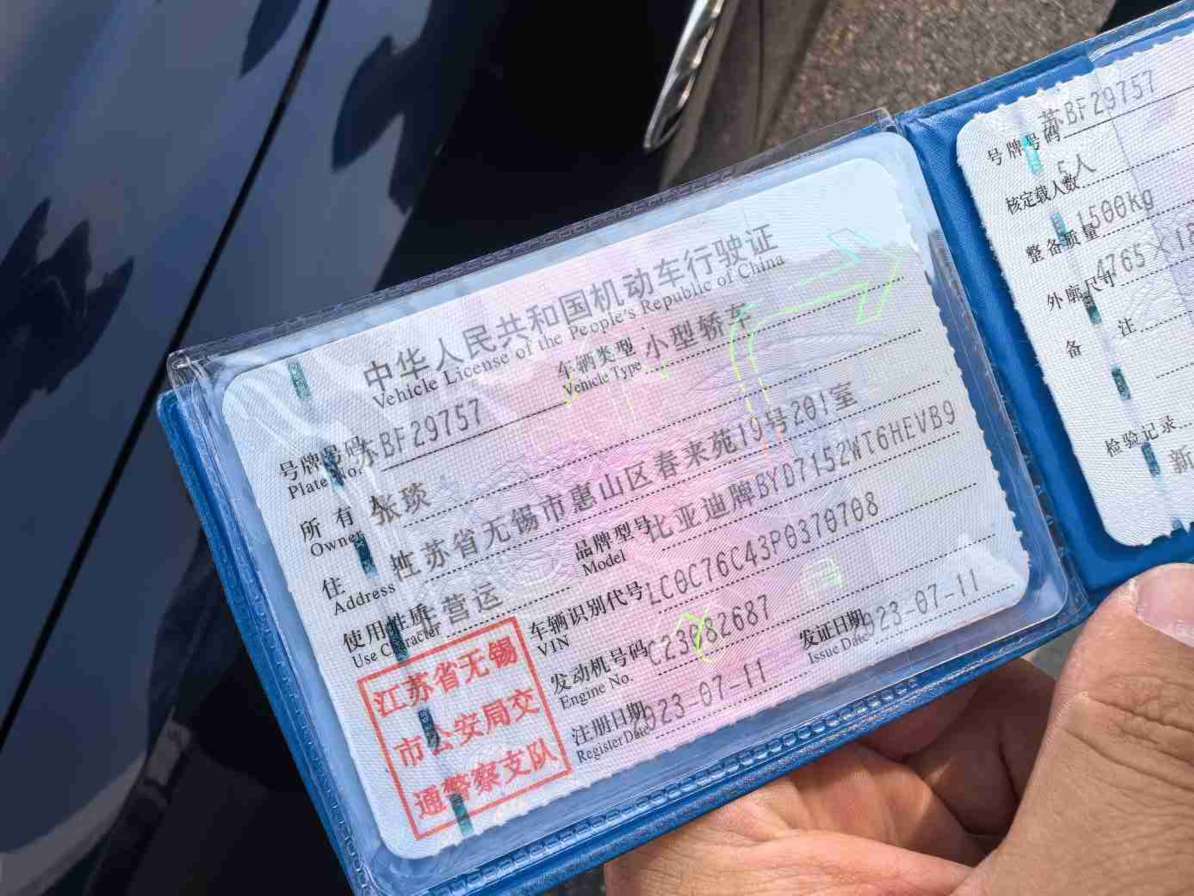 中华人民共和国机动车行驶证
Vehicle License of the People's Republic of China
号牌号码 苏BF29757 车辆类型 小型轿车
Plate No. Vehicle Type
所有人 张琰
Owner
住址 江苏省无锡市惠山区春来苑19号201室
Address
使用性质 非营运 品牌型号 比亚迪牌BYD7152WT6HEVB9
Use Character Model
车辆识别代号 LC0C76C43P0370708
VIN
发动机号码 C23082687
Engine No.
注册日期 023-07-11 发证日期 023-07-11
Register Date Issue Date
江苏省无锡
市公安局交
通警察支队
号牌号码 苏BF29757
核定载人数 5人
整备质量 1500kg
外廓尺寸 4765×18
备注
检验记录
新